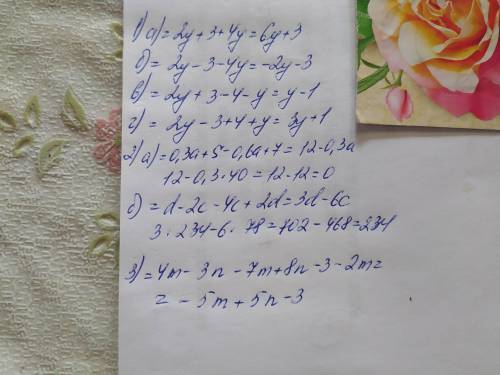 1) а) = 2y + 3 + 4y = 6y + 3
б) = 2y - 3 - 4y = -2y - 3
в) = 2y + 3 - 4 - y = y - 1
г) = 2y - 3 + 4 + y = 3y + 1
2) а) = 0,3a + 5 - 0,6a + 7 = 12 - 0,3a
12 - 0,3 · 40 = 12 - 12 = 0
б) = d - 2c - 4c + 2d = 3d - 6c
3 · 234 - 6 · 78 = 702 - 468 = 234
3) = 4m - 3n - 7m + 8n - 3 - 2m =
= - 5m + 5n - 3